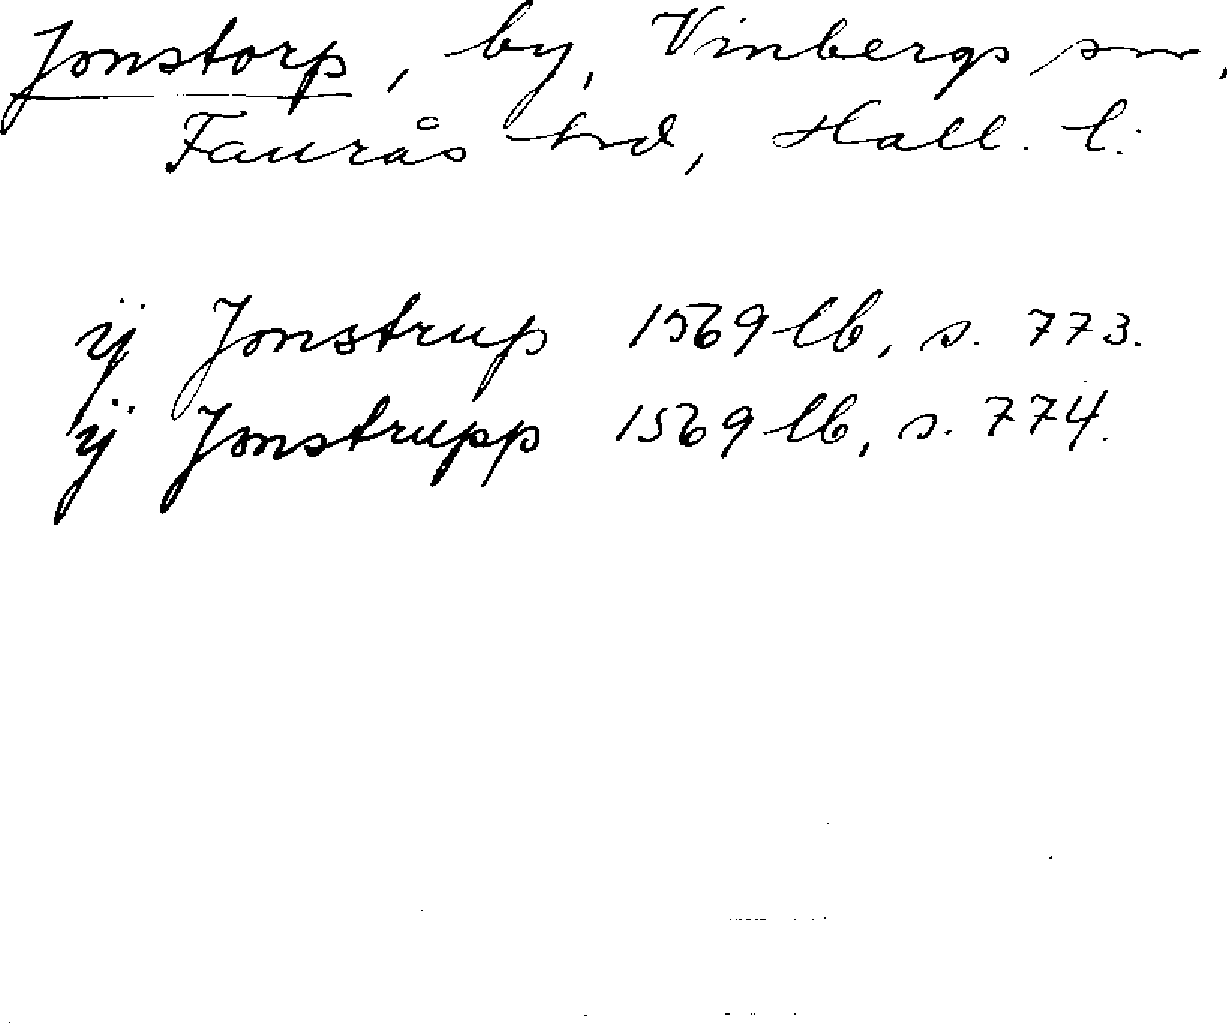 Jonstorp, by, Vinbergs sn,
Faurås hrd, Hall. l.
ÿ Jonstrup 1569 lb, s. 773.
ÿ Jonstrupp 1569 lb, s. 774.